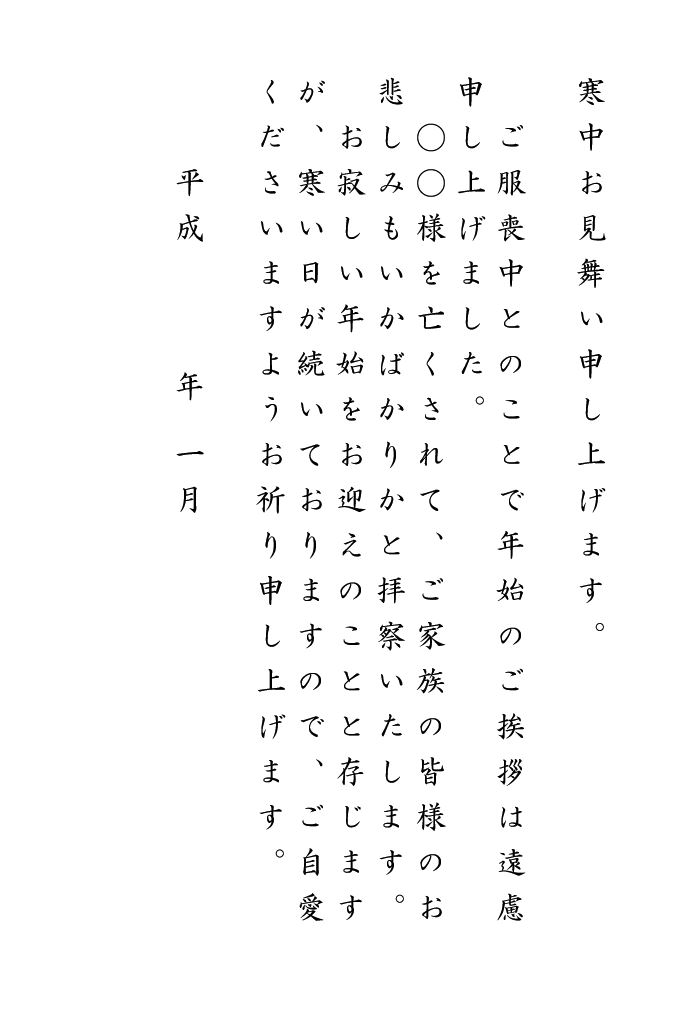 寒中お見舞い申し上げます。
ご服喪中とのことで年始のご挨拶は遠慮
申し上げました。
〇〇様を亡くされて、ご家族の皆様のお
悲しみもいかばかりかと拝察いたします。
お寂しい年始をお迎えのことと存じます
が、寒い日が続いておりますので、ご自愛
くださいますようお祈り申し上げます。
平成　　年　一月